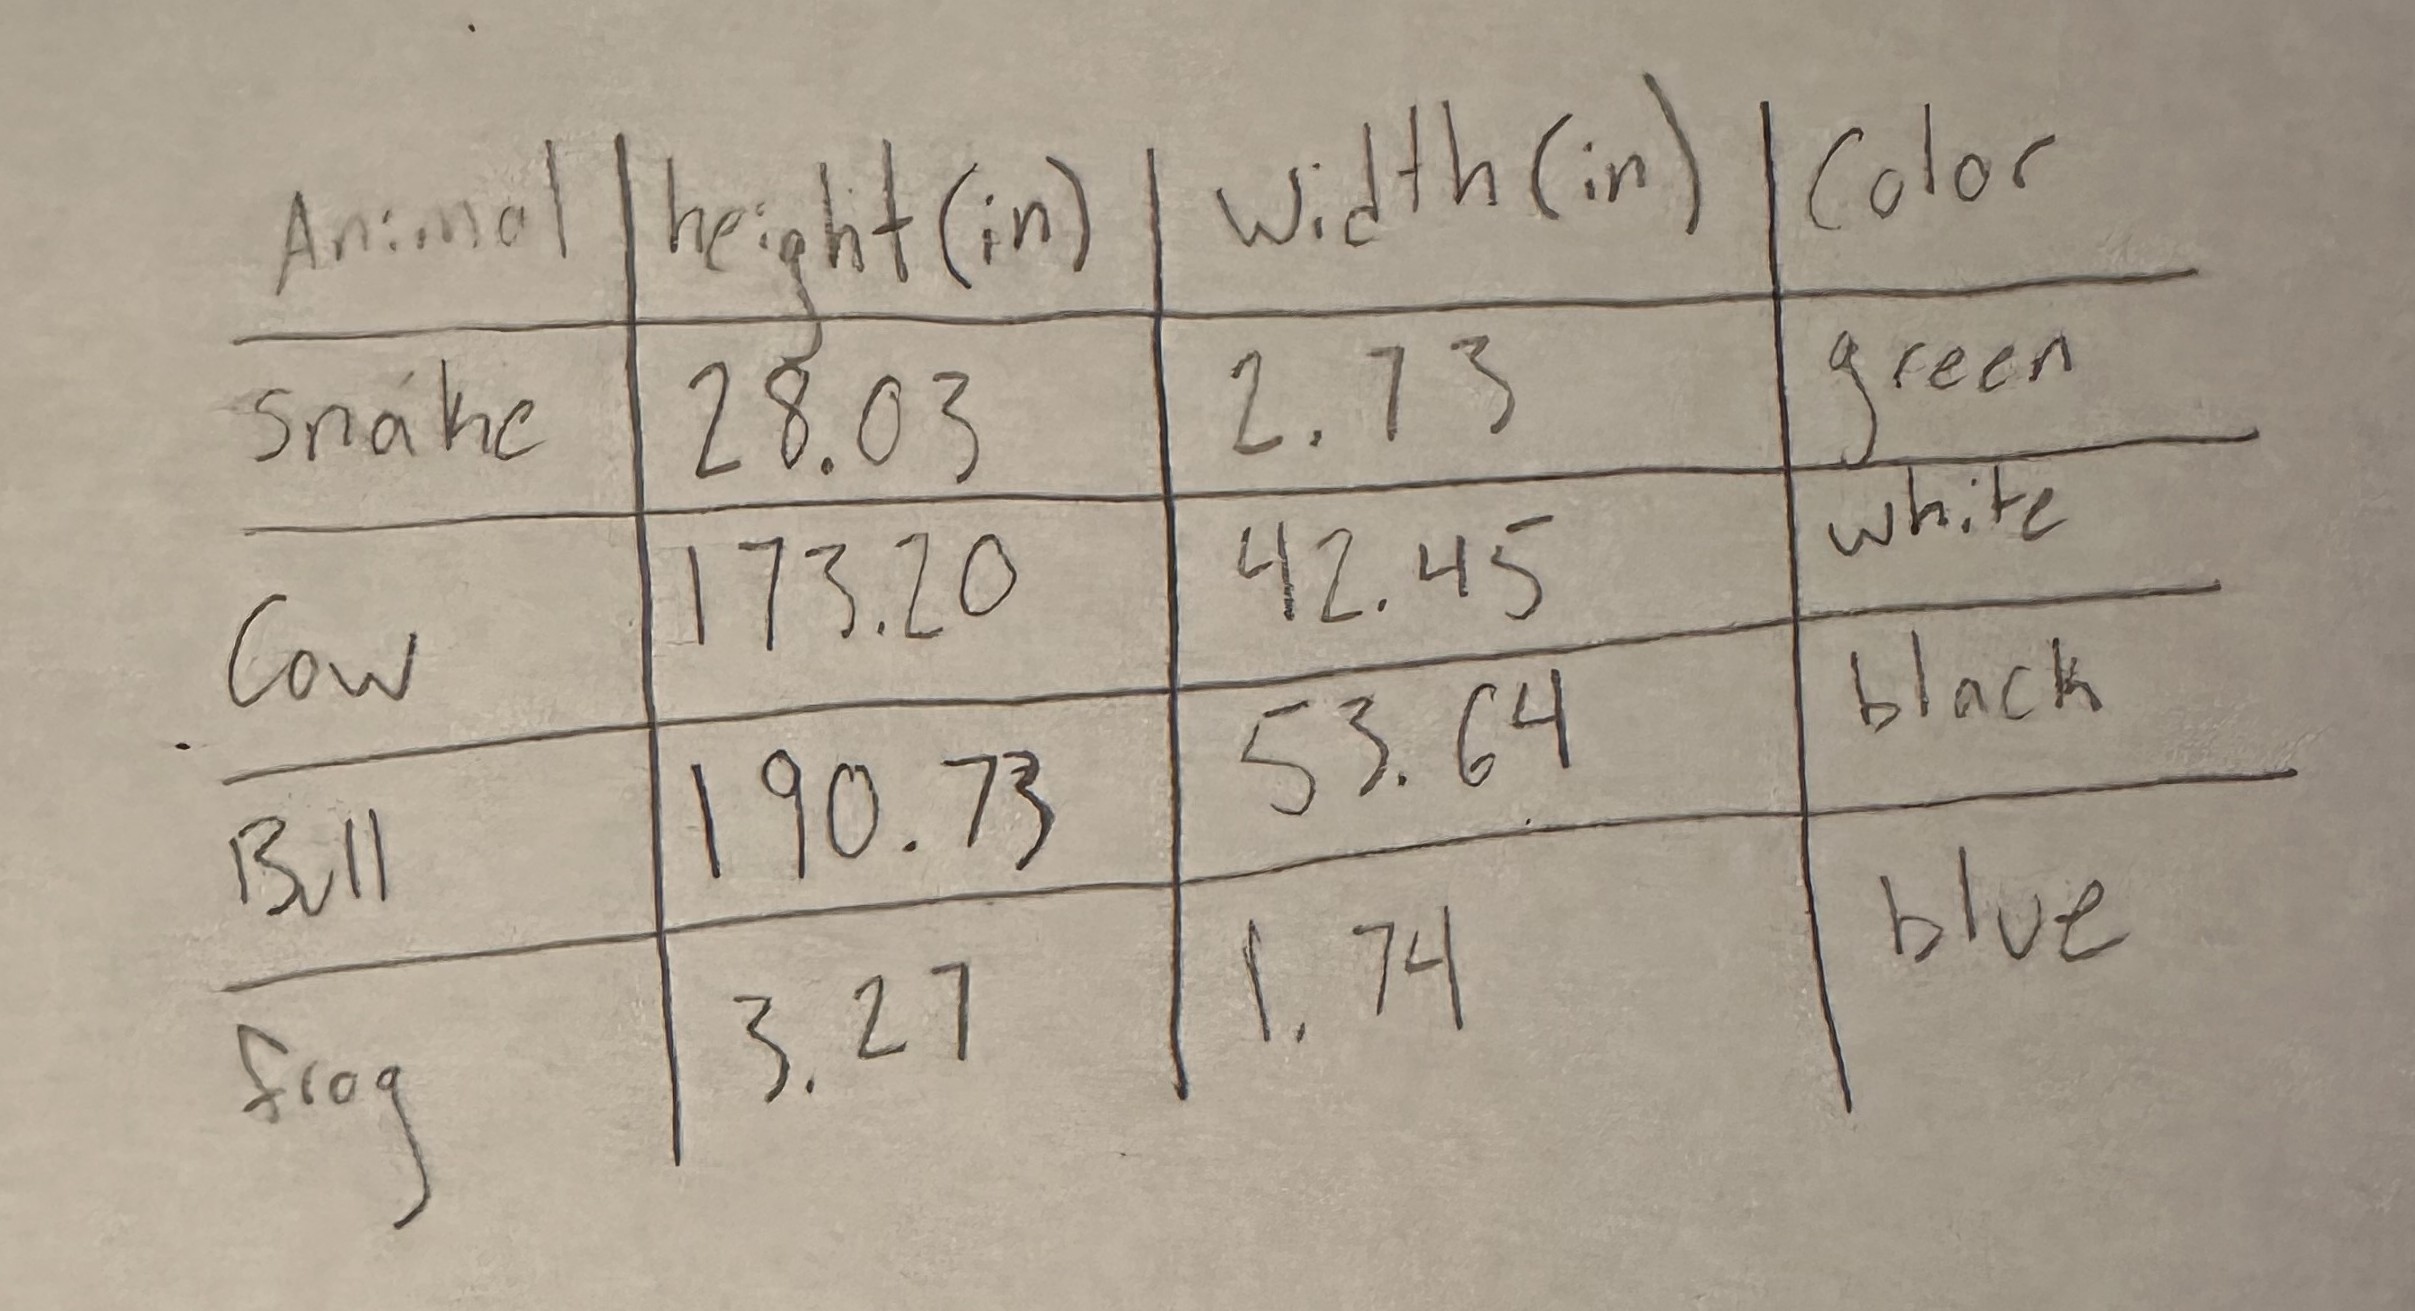 Animal height(in) width(in) Color
Snake 28.03 2.73 green
Cow 173.20 42.45 white
Bull 190.73 53.64 black
frog 3.27 1.74 blue